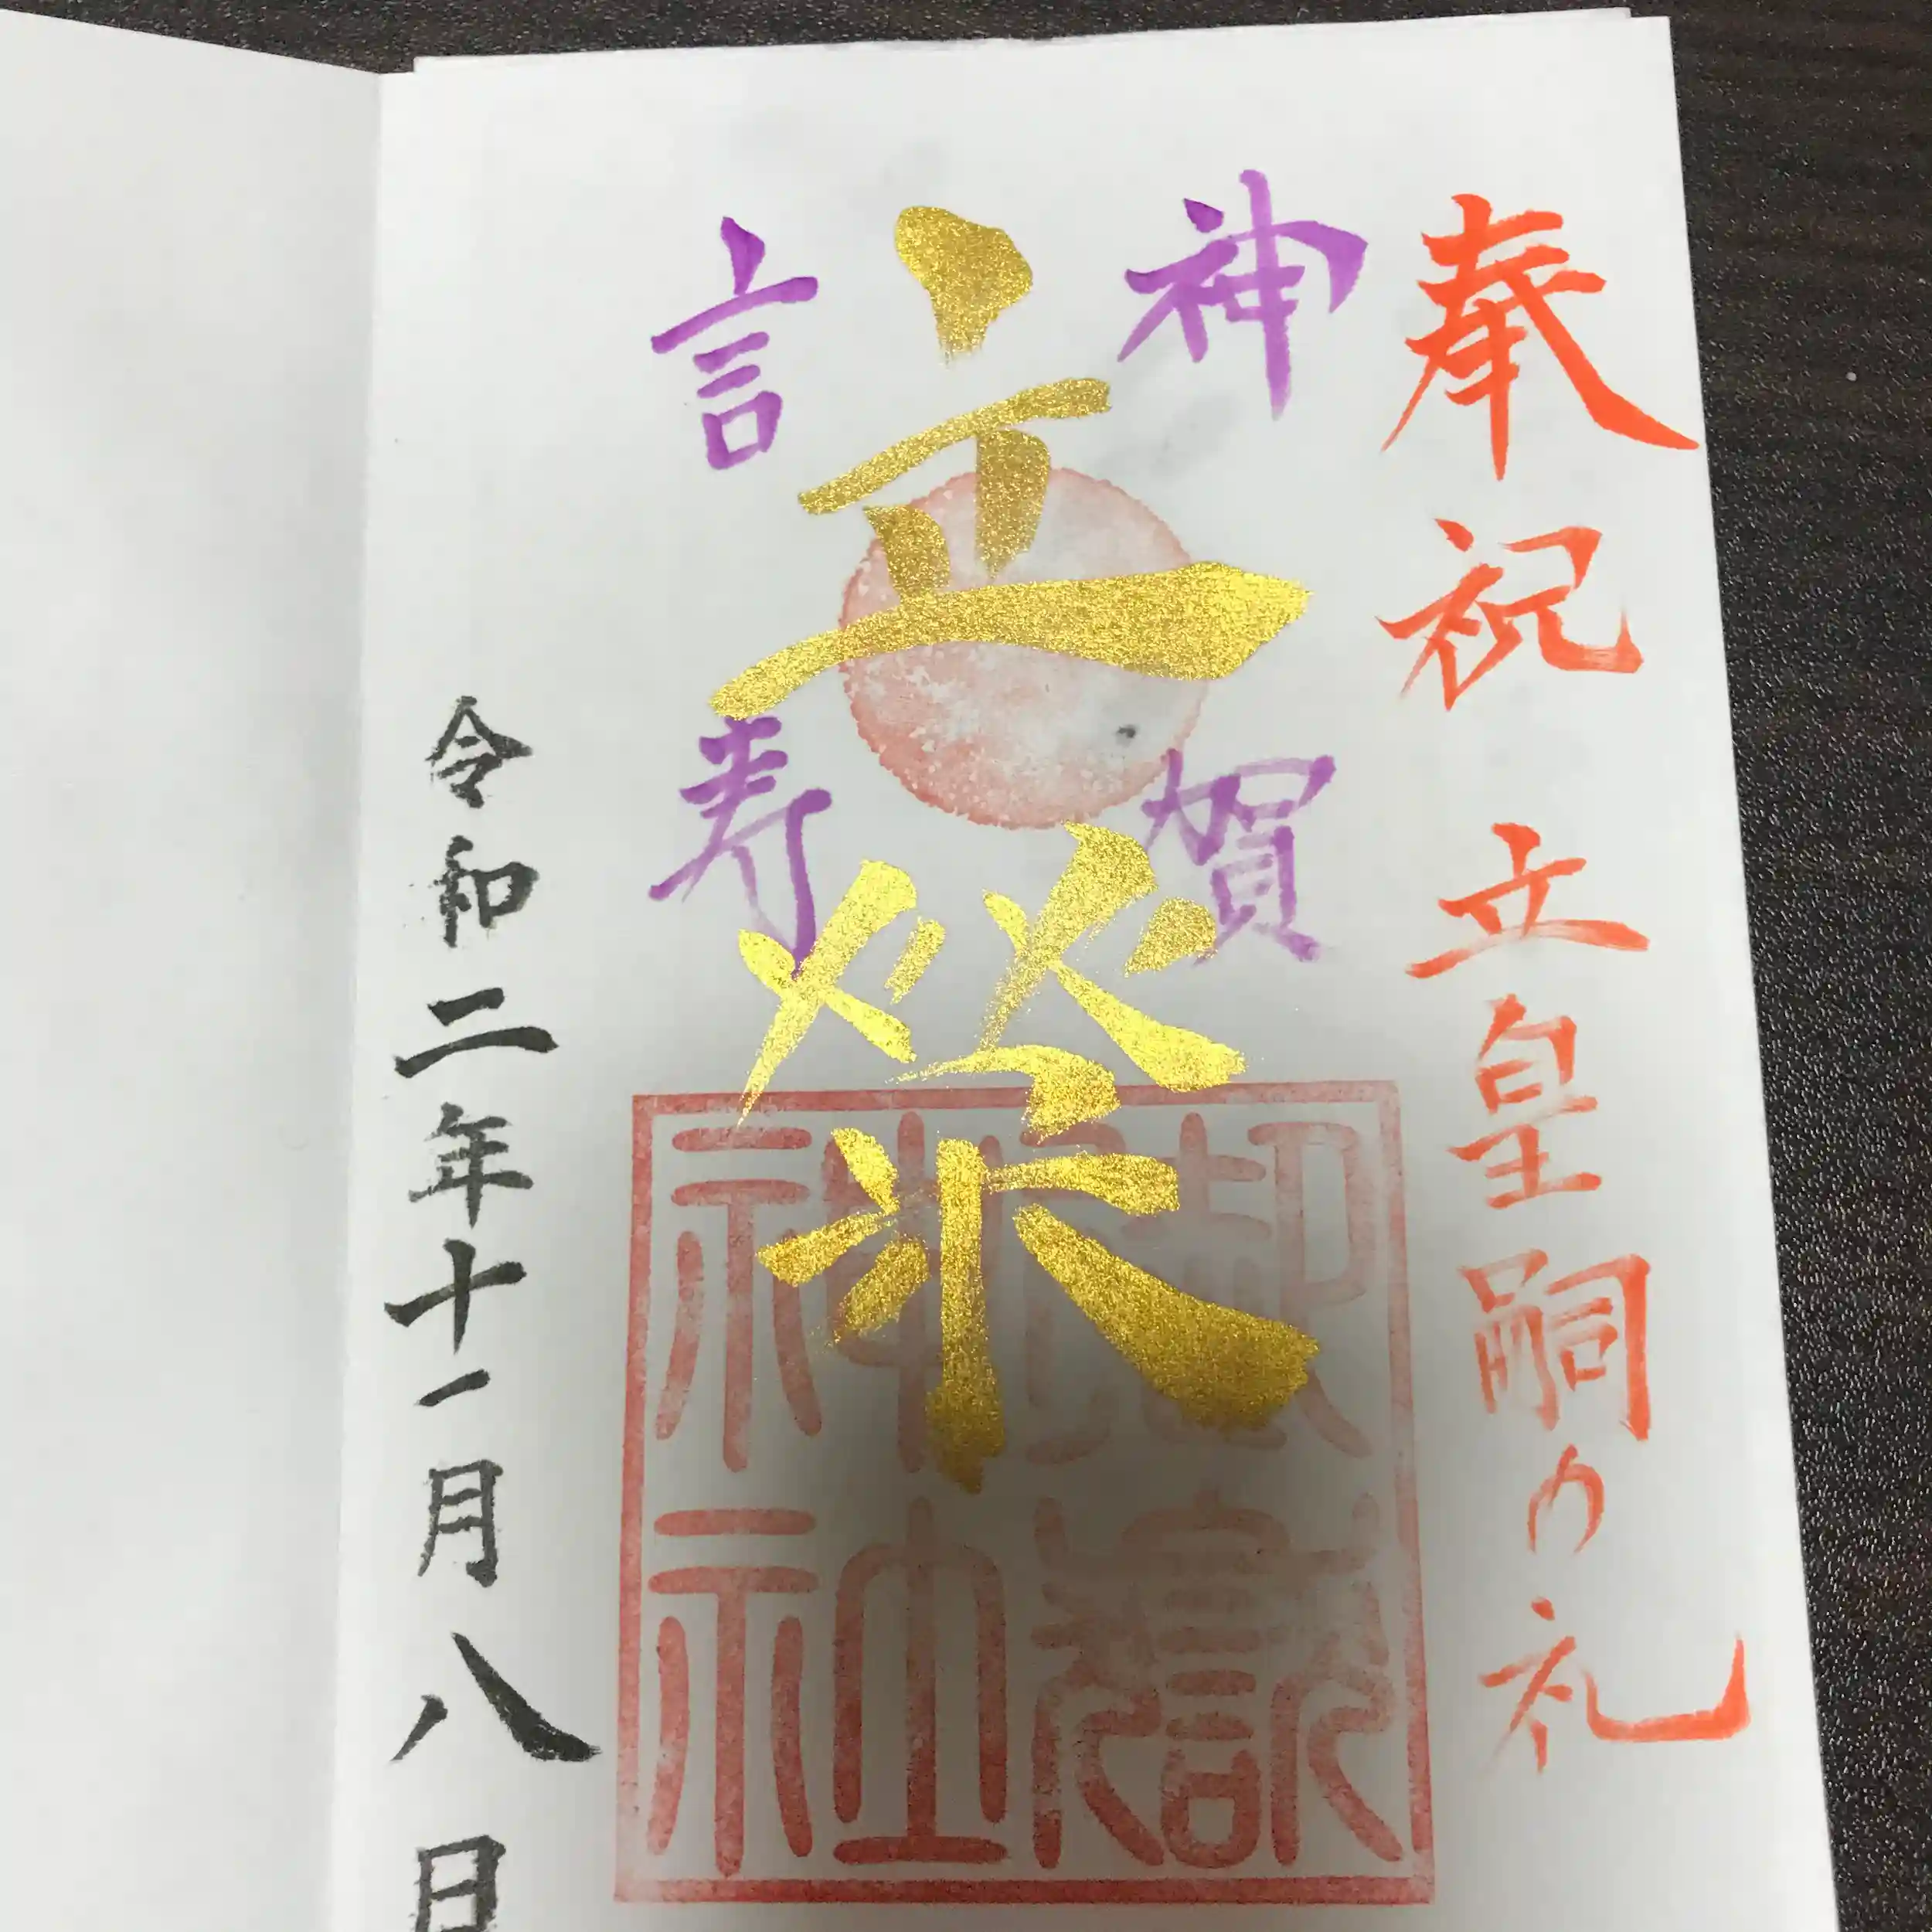 奉祝 立皇嗣の礼
神賀
立榮
言寿
御嶽
神社
令和二年十一月八日